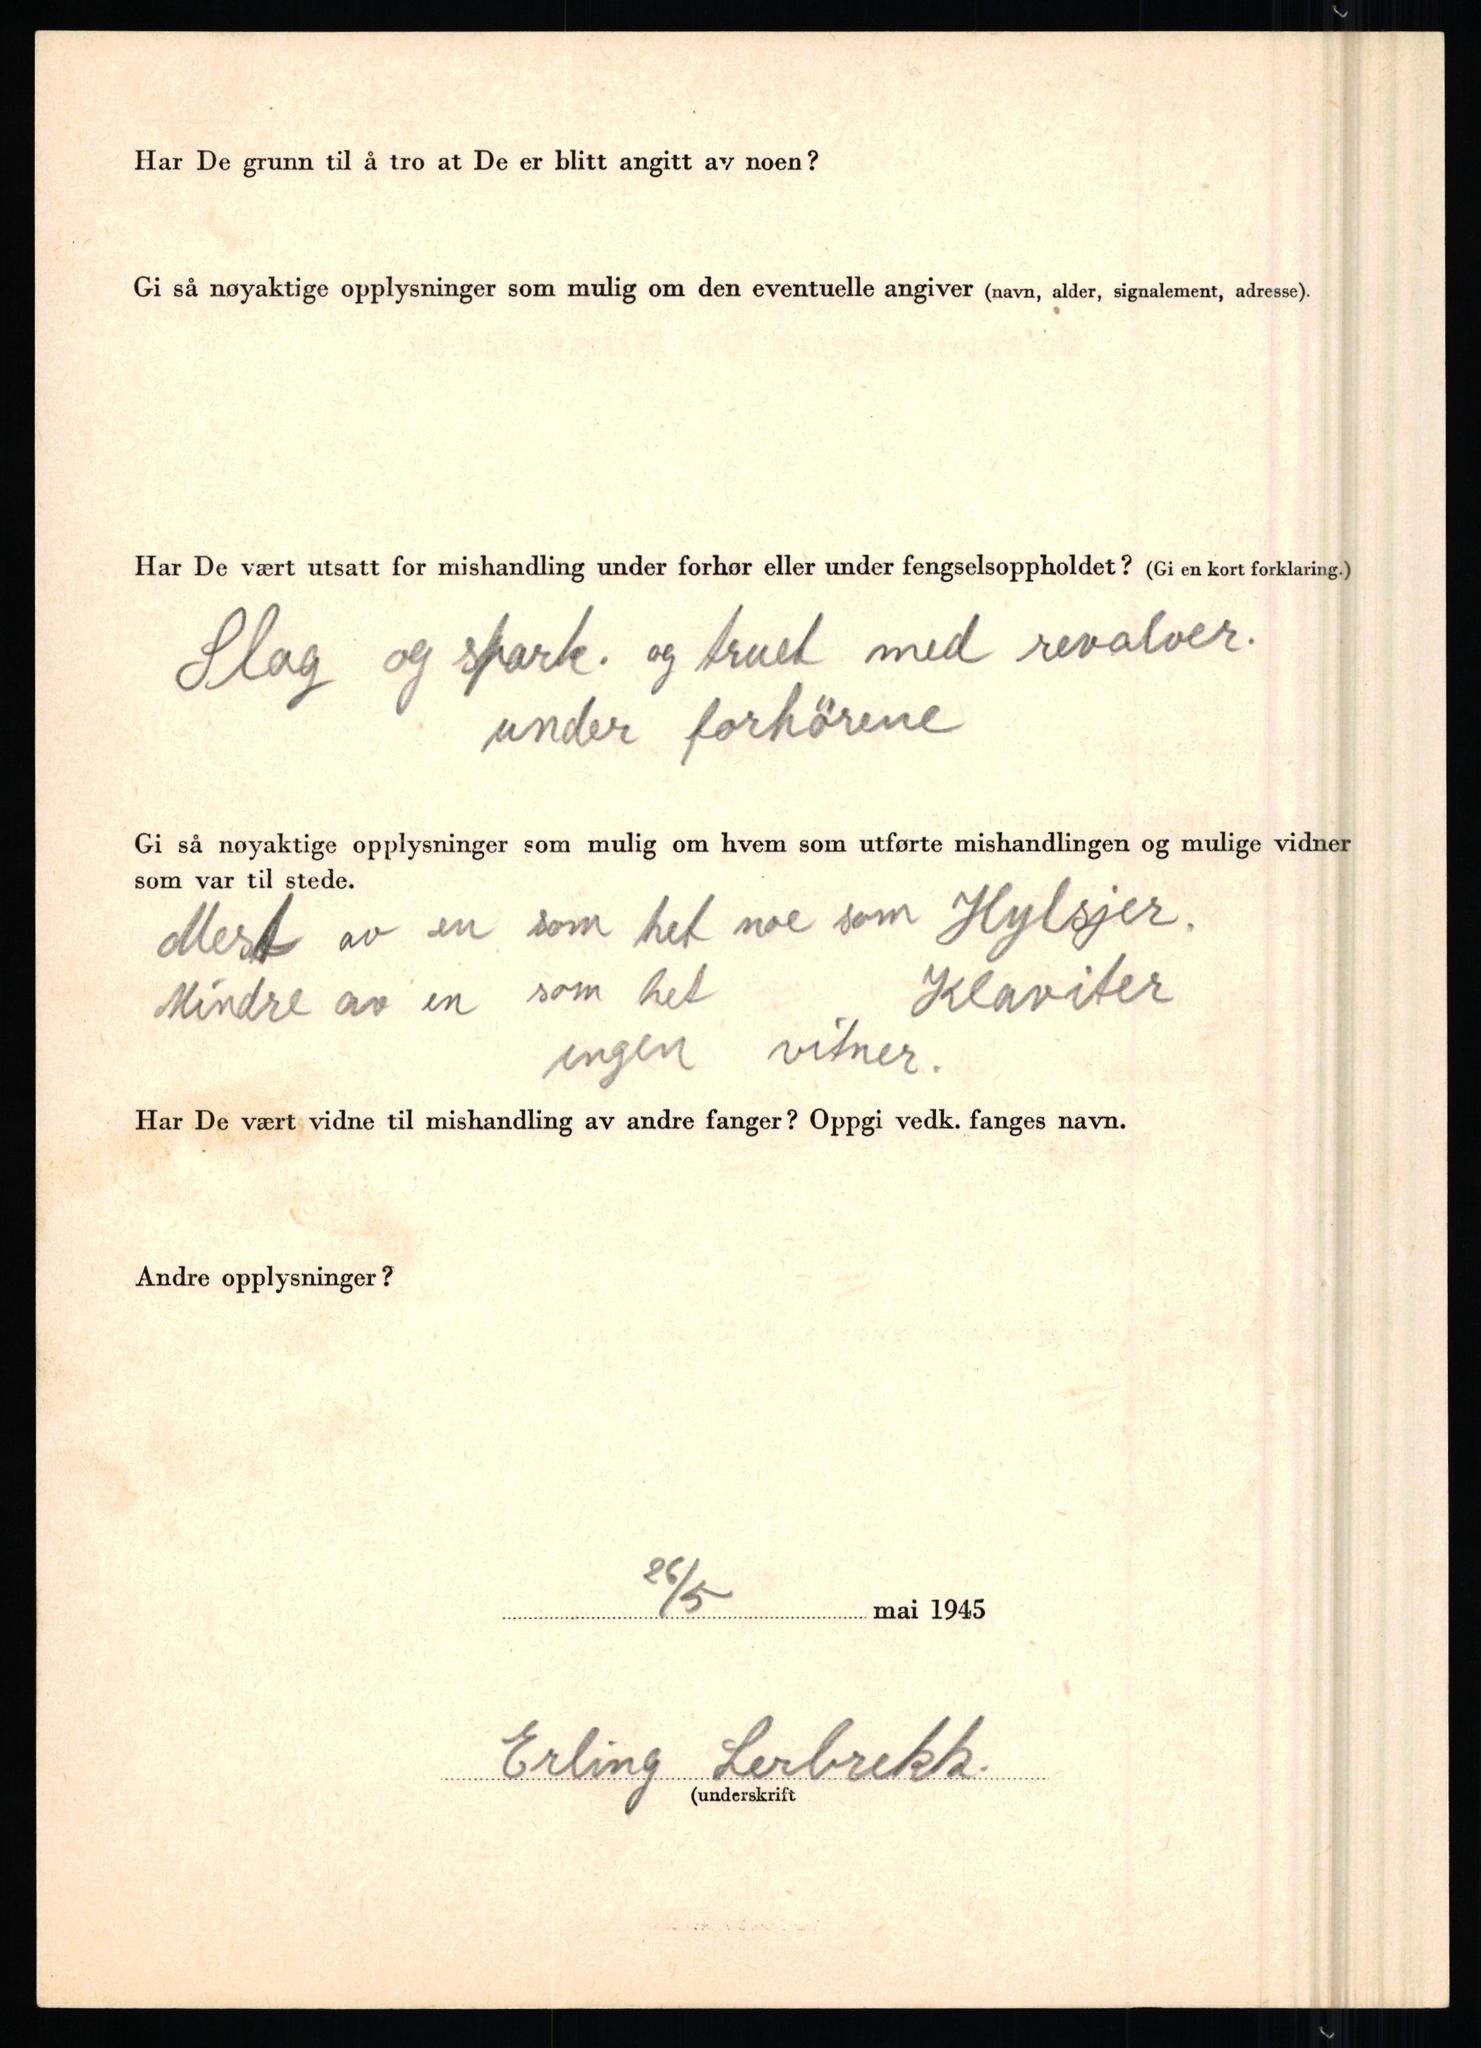 Har De grunn til å tro at De er blitt angitt av noen?
Gi så nøyaktige opplysninger som mulig om den eventuelle angiver (navn, alder, signalement, adresse).
Har De vært utsatt for mishandling under forhør eller under fengselsoppholdet? (Gi en kort forklaring.)
Slag og spark. og truet med revalver.
under forhörene
Gi så nøyaktige opplysninger som mulig om hvem som utførte mishandlingen og mulige vidner
som var til stede.
Mest av en som het noe som Hylsjer.
Mindre av en som het Klaviter
ingen vitner.
Har De vært vidne til mishandling av andre fanger? Oppgi vedk. fanges navn.
Andre opplysninger?
26/5 mai 1945
Erling Lerbrekk.
(underskrift